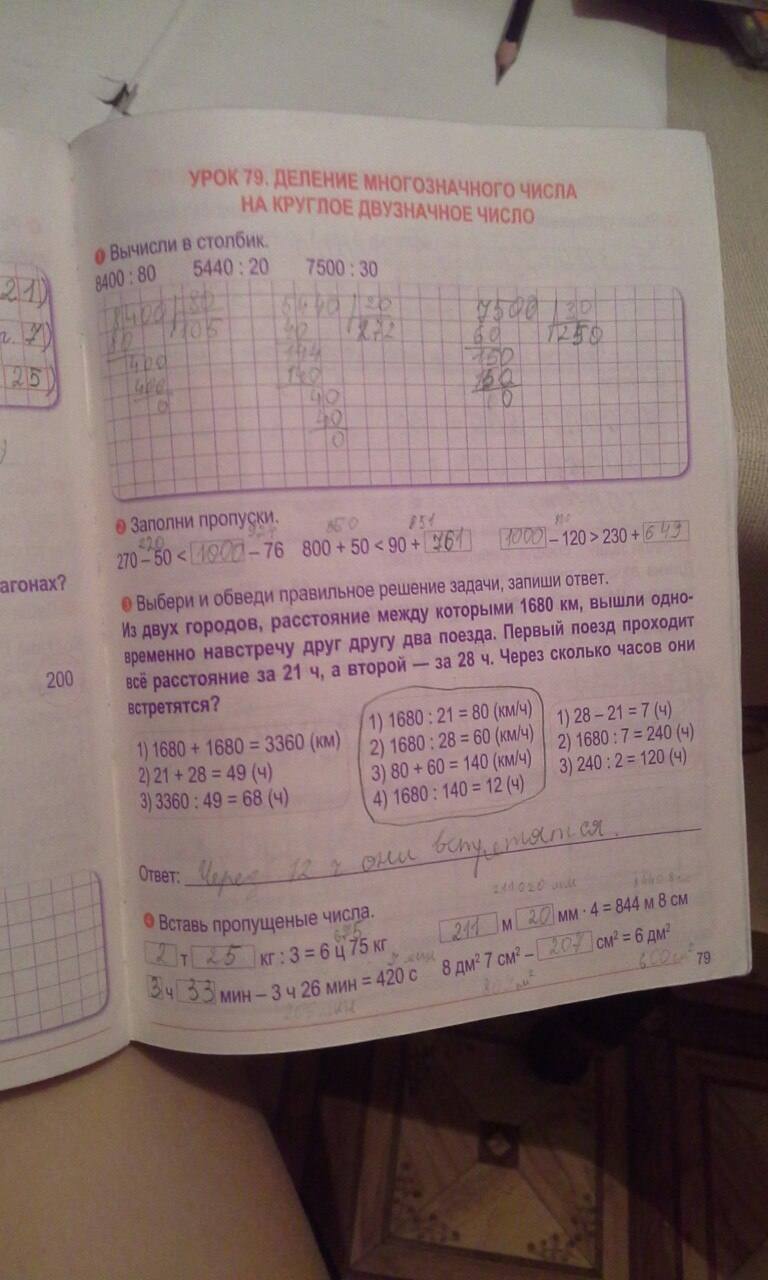 УРОК 79. ДЕЛЕНИЕ МНОГОЗНАЧНОГО ЧИСЛА
НА КРУГЛОЕ ДВУЗНАЧНОЕ ЧИСЛО
1 Вычисли в столбик.
8400 : 80 5440 : 20 7500 : 30
21)
7)
25)
8400 80 5440 20 7500 30
80 105 40 272 60 250
400 144 150
400 140 150
0 40 0
40
0
2 Заполни пропуски.
220 850 851
270 – 50 < 1000 – 76 800 + 50 < 90 + 761 1000 – 120 > 230 + 649
агонах?
200
3 Выбери и обведи правильное решение задачи, запиши ответ.
Из двух городов, расстояние между которыми 1680 км, вышли одно-
временно навстречу друг другу два поезда. Первый поезд проходит
всё расстояние за 21 ч, а второй — за 28 ч. Через сколько часов они
встретятся?
1) 1680 + 1680 = 3360 (км)
2) 21 + 28 = 49 (ч)
3) 3360 : 49 = 68 (ч)
1) 1680 : 21 = 80 (км/ч)
2) 1680 : 28 = 60 (км/ч)
3) 80 + 60 = 140 (км/ч)
4) 1680 : 140 = 12 (ч)
1) 28 – 21 = 7 (ч)
2) 1680 : 7 = 240 (ч)
3) 240 : 2 = 120 (ч)
Ответ: Через 12 ч они встретятся.
4 Вставь пропущеные числа.
211020 мм
675
2 т 25 кг : 3 = 6 ц 75 кг
211 м 20 мм · 4 = 844 м 8 см
7 мин
3 ч 33 мин – 3 ч 26 мин = 420 с
8 дм² 7 см² – 207 см² = 6 дм²
600 см²
79